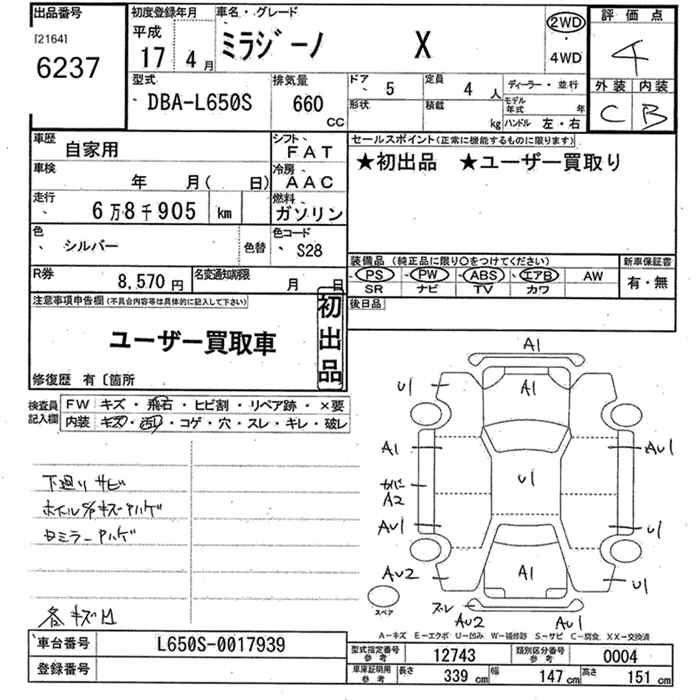 出品番号 初度登録年月 車名・グレード 評価点
[2164] 平成 ミラジーノ X 2WD 4
6237 17年 4月 4WD 外装 内装
型式 排気量 ドア 5 定員 4人 ディーラー・並行 C B
DBA-L650S 660 CC 形状 積載 kg モデル年式 年 ハンドル 左・右
車歴 自家用 シフト FAT セールスポイント(正常に機能するものに限ります)
車検 年 月( 日) 冷房 AAC ★初出品 ★ユーザー買取り
走行 6万8千905 km 燃料 ガソリン
色 シルバー 色替 色コード S28
装備品 (純正品に限り○をつけてください) 新車保証書
R券 8,570円 名変通知期限 月 日 PS PW ABS エアB AW 有・無
SR ナビ TV カワ
注意事項申告欄(不具合内容等は具体的に記入して下さい) 初出品 後日品
ユーザー買取車
修復歴 有〔箇所
検査員記入欄 FW キズ・飛石・ヒビ割・リペア跡・×要
内装 キズ・汚れ・コゲ・穴・スレ・キレ・破レ
A1
U1 A1
A1 U1 AU1
下廻りサビ
A2
ホイル4/4キズハゲ
AU1 U1
ミラーハゲ
AU2 A1 U1
スペア ズレ AU2 AU1
各キズ凹
A-キズ E-エクボ U-凹み W-補修跡 S-サビ C-腐食 XX-交換済
車台番号 L650S-0017939 型式指定番号 参考 12743 類別区分番号 参考 0004
登録番号 車庫証明用 参考 長さ 339 cm 幅 147 cm 高さ 151 cm